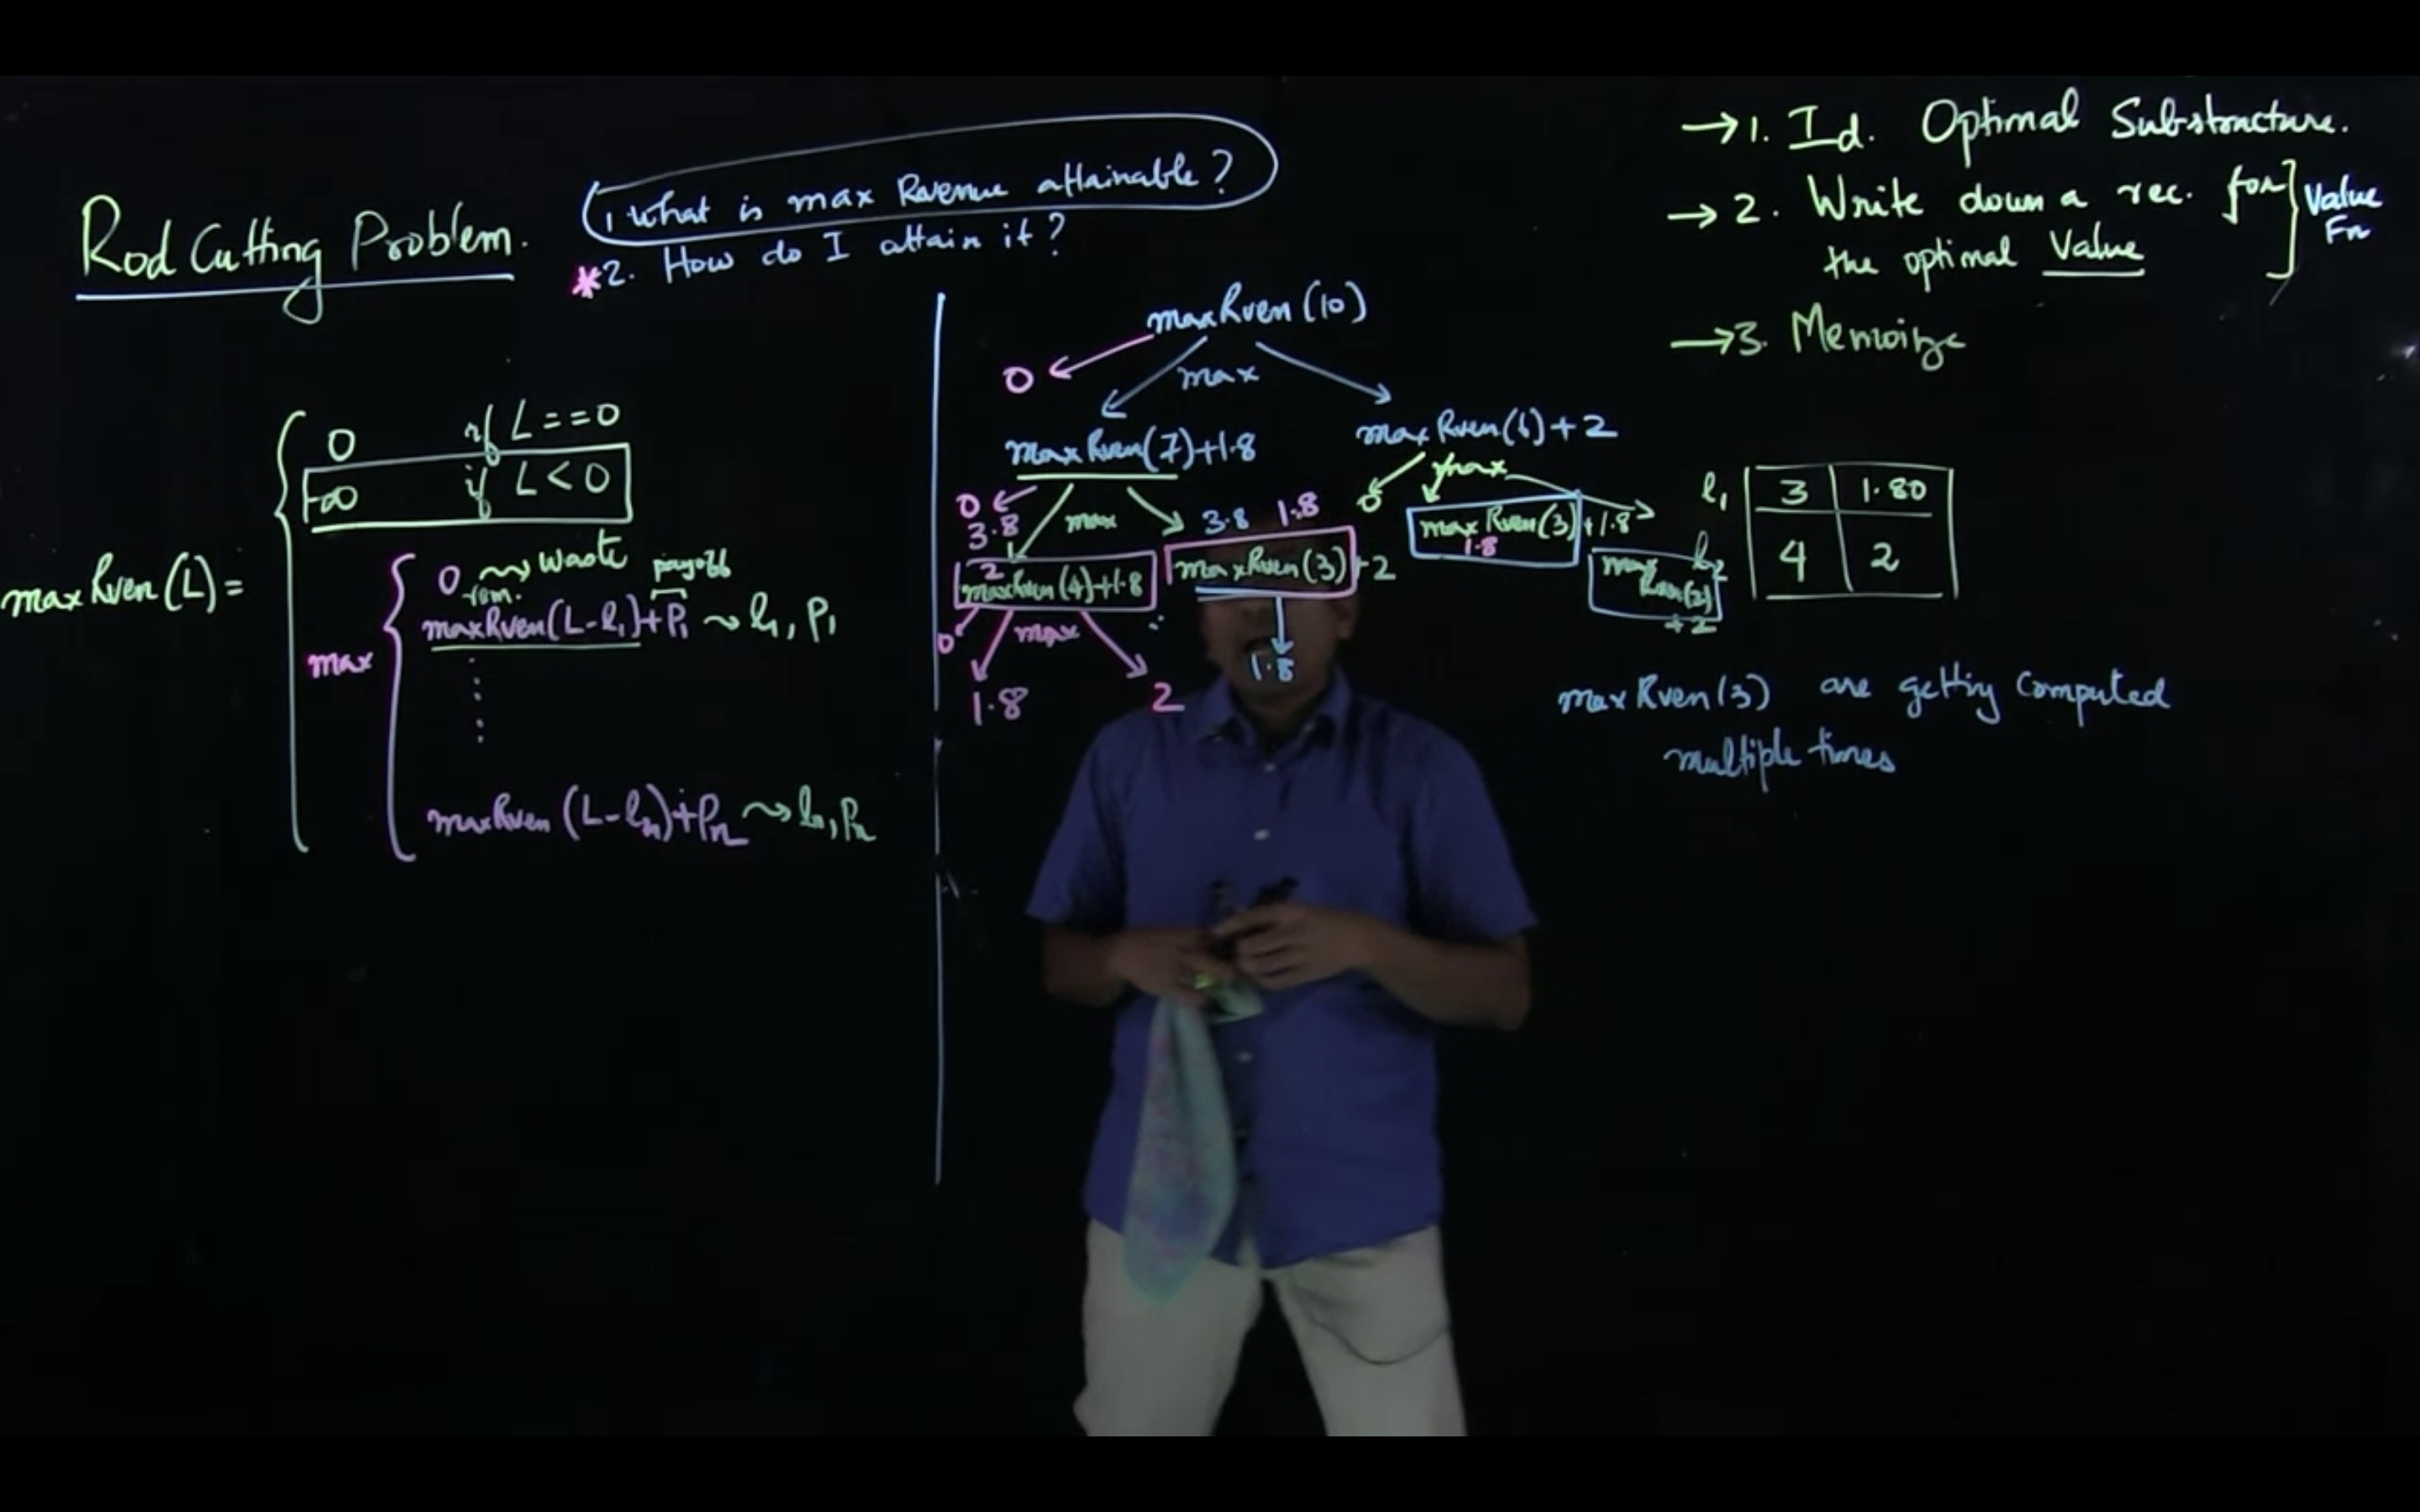 Rod Cutting Problem.
1 What is max Revenue attainable?
*2. How do I attain it?
→1. Id. Optimal Substructure.
→2. Write down a rec. for
the optimal Value
Value
Fn
→3. Memoize
maxRven(L)=
0 if L==0
-∞ if L<0
max
0 ⇝ Waste
rem. payoff
maxRven(L-l₁)+P₁ ⇝ l₁, P₁
maxRven(L-lₙ)+Pₙ ⇝ lₙ, Pₙ
maxRven(10)
0 max
maxRven(7)+1.8
maxRven(6)+2
0 max 3.8 1.8
3.8
2
maxRven(4)+1.8
maxRven(3)+2
0 max
1.8 2
1.8
0 max
maxRven(3)+1.8
1.8
max
Rven(2)
+2
l₁ 3 1.80
l₂ 4 2
maxRven(3) are getting computed
multiple times